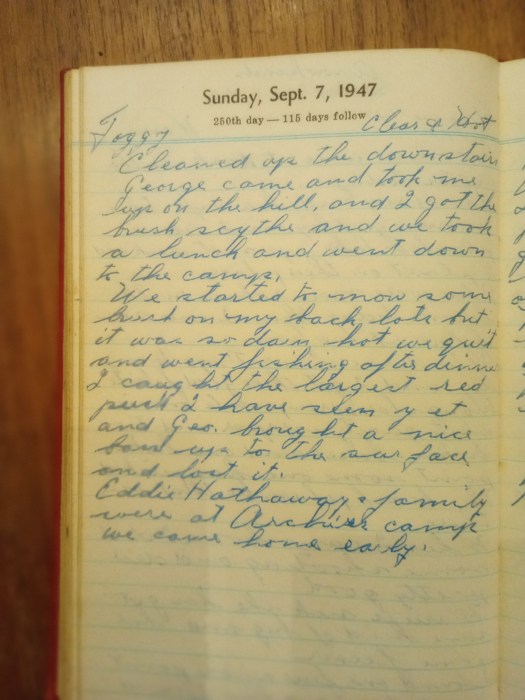 Sunday, Sept. 7, 1947
250th day — 115 days follow
Foggy Clear & Hot
Cleaned up the downstairs
George came and took me
up on the hill, and I got the
bush scythe and we took
a lunch and went down
to the camp.
We started to mow some
brush on my back lots but
it was so darn hot we quit
and went fishing after dinner
I caught the largest red
I have seen yet
and Geo. brought a nice
bass up to the surface
and lost it.
Eddie Hathaway & family
were at Archies camp
we came home early.